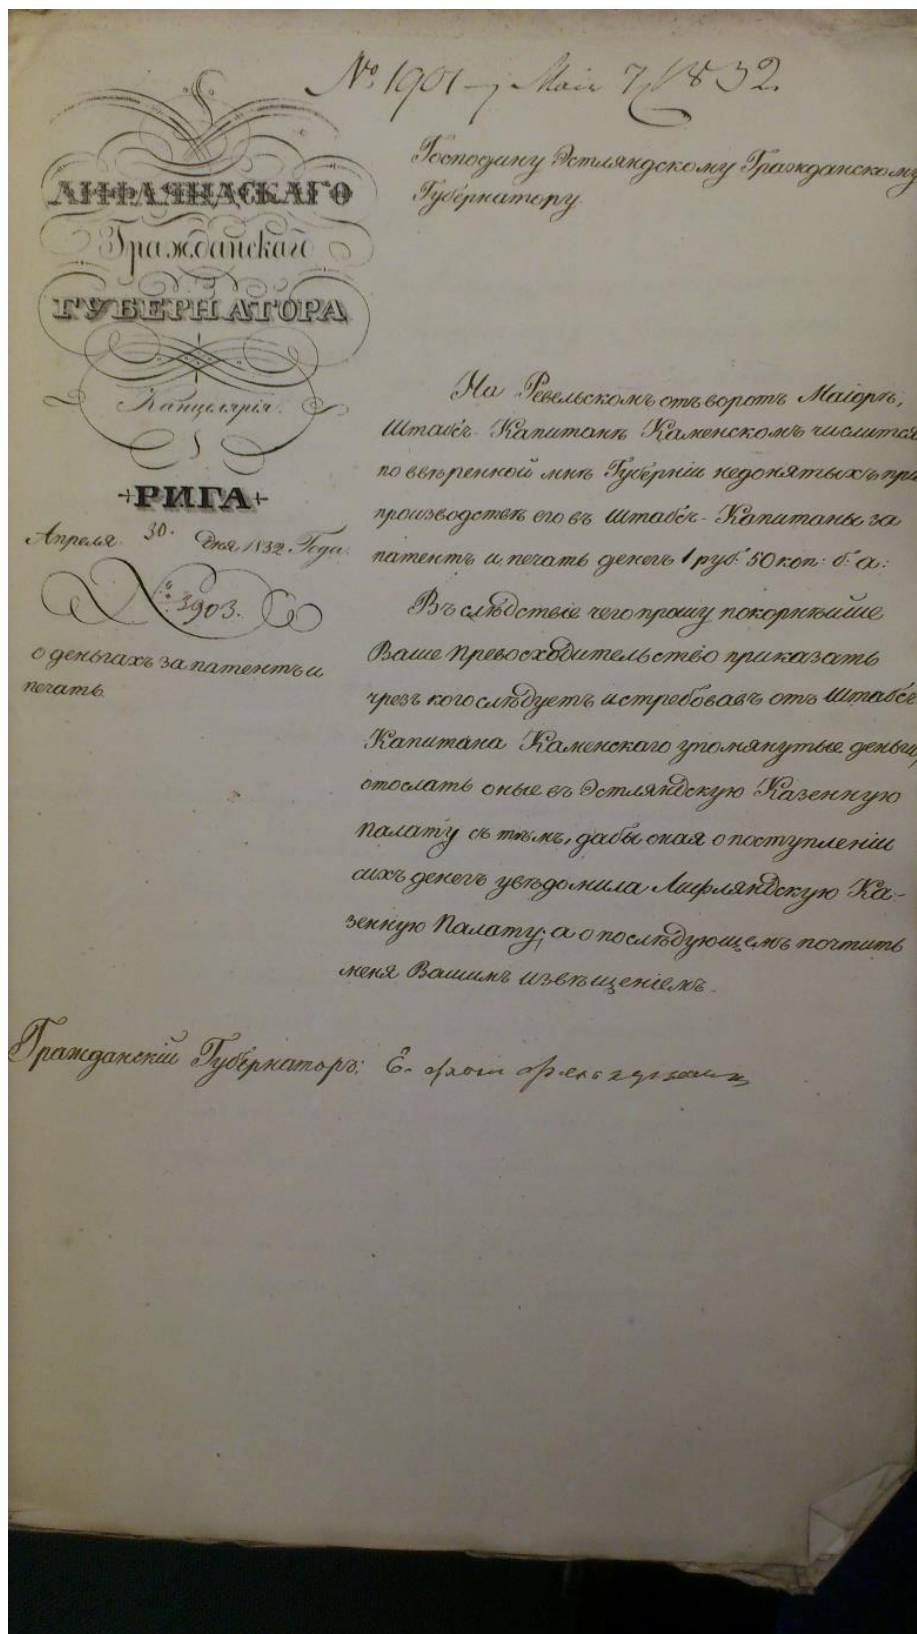 № 1901 Маiя 7, 1832.
ЛИФЛЯНДСКАГО
Гражданскаго
ГУБЕРНАТОРА
Канцелярiя.
РИГА
Апреля 30. дня 1832 Года.
№: 3903.
о деньгахъ за патентъ и
печать.
Господину Эстляндскому Гражданскому
Губернатору.
На Ревельскомъ отъ воротъ Маiорѣ,
Штабсъ-Капитанѣ Каменскомъ числится
по ввѣренной мнѣ Губернiи недонятыхъ при
производствѣ его въ Штабсъ-Капитаны за
патентъ и печать денегъ 1 руб. 50 коп: б: а:
Въ слѣдствiе чего прошу покорнѣйше
Ваше Превосходительство приказать
чрезъ кого слѣдуетъ истребовавъ отъ Штабсъ
Капитана Каменскаго упомянутые деньги,
отослать оные въ Эстляндскую Казенную
палату съ тѣмъ, дабы оная о поступленiи
сихъ денегъ увѣдомила Лифляндскую Ка-
зенную Палату; а о послѣдующемъ почтить
меня Вашимъ извѣщенiемъ.
Гражданскiй Губернаторъ: Е. фон Фелькерзам